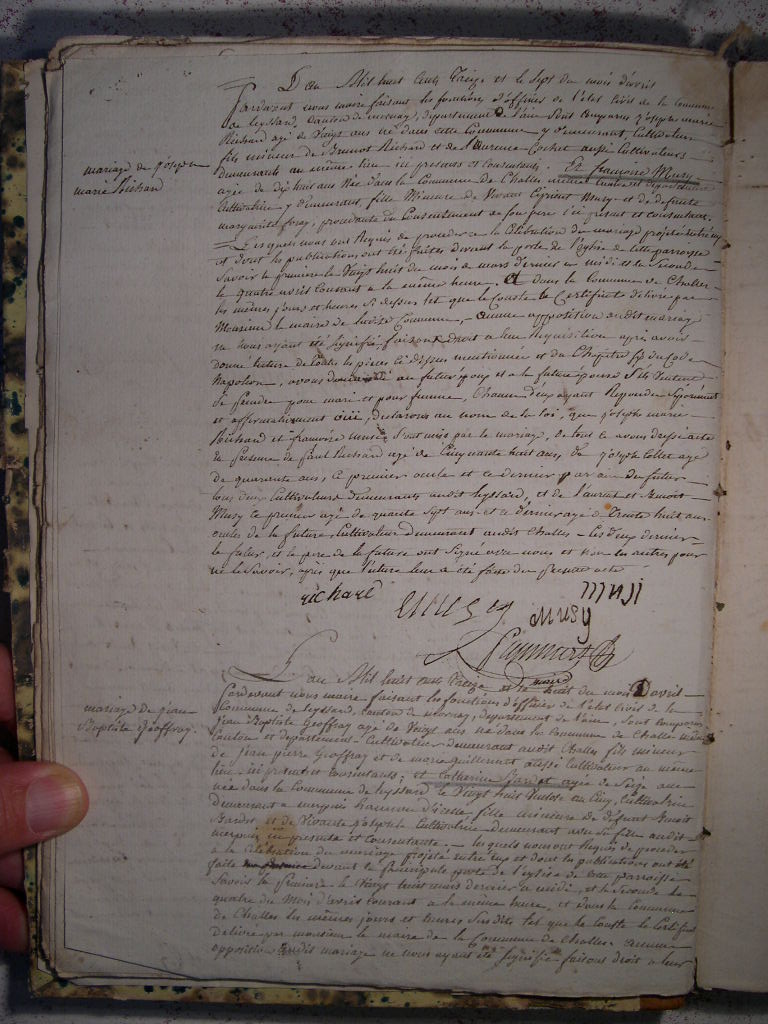 L'an Mil huit cent Treize et le Sept du mois d'avril
Pardevant nous maire faisant les fonctions d'officier de l'état Civil de la Commune
de leyssard, Canton de isernay, département de l'ain Sont Comparus joseph marie
Richard agé de Vingt ans né dans cette Commune y demeurant, Cultivateur
fils mineur de Benoit Richard et de Laurence Cochet aussi Cultivateurs
mariage de joseph
marie Richard
demeurants au même lieu ici présents et Consentants, Et françoise Musy
agée de dix huit ans née dans la Commune de Challes même Canton et département
Cultivatrice y demeurant, fille Mineure de Vivant Ciprient Musy et de défunte
marguerite foray, procédante du Consentement de son père ici présent et consentant.
Lesquels nous ont Requis de procéder a la Célébration du mariage projeté entre eux
et dont les publications ont été faites devant la porte de l'église de cette paroisse
Savoir la première le Vingt huit du mois de mars dernier a midi et la Seconde
le quatre avril Courant a la même heure. et dans la Commune de Challes
les mêmes jours et heures Si dessus tel que le Conste le Certificat délivré par
Monsieur le maire de ladite Commune, aucune opposition audit mariage
ne nous ayant été Signifié, faisant droit a leur Requisition après avoir
donné lecture de toutes les pièces Ci dessus mentionnées et du Chapitre du Code
Napoléon, avons demandé au futur époux et a la future épouse S'ils Veulent
Se prendre pour mari et pour femme, Chacun d'eux ayant Repondu Séparément
et affirmativement oui, déclarons au nom de la loi, que joseph marie
Richard et françoise musy Sont unis par le mariage, de tout ce avons dressé acte
en présence de paul Richard agé de Cinquante huit ans, de joseph Collet agé
de quarante ans, le premier oncle et ce dernier du futur
tous deux Cultivateurs demeurants audit leyssard, et de Laurent et Benoit
Musy le premier agé de quarante Sept ans et ce dernier agé de trente huit ans
oncles de la future, Cultivateurs demeurant audit Challes - les deux derniers
le futur, et le père de la future ont Signé avec nous et non les autres pour
ne le Savoir, après que lecture leur a été faite du présent acte
richard musy musy musi
L'an Mil huit cent Treize et le huit du mois D'avril
mariage de jean
Baptiste Geoffray.
Pardevant nous maire faisant les fonctions d'officier de l'état Civil de la
Commune de leyssard, canton de isernay, département de l'ain, Sont Comparus
jean Baptiste Geoffray agé de Vingt ans né dans la Commune de Challes même
Canton et département Cultivateur demeurant audit Challes fils mineur
de jean pierre Geoffray et de marie Guillermet aussi Cultivateur au même
lieu ici présents et Consentants; et Catherine Bardet agée de Seize ans
née dans la Commune de leyssard le Vingt huit an Cinq, Cultivatrice
demeurant a hameau d'icelle, fille mineure de défunt Benoit
Bardet et de Vivante Cultivatrice demeurant avec Sa fille audit
ici présente et Consentante. lesquels nous ont Requis de procéder
a la Célébration du mariage projeté entre eux et dont les publications ont été
faites devant la principale porte de l'église de cette paroisse
Savoir la première le Vingt huit mars dernier a midi, et la Seconde le
quatre du Mois d'avril courant a la même heure, et dans la Commune
de Challes les mêmes jours et heures Susdits tel que le Conste le Certificat
Délivré par monsieur le maire de la Commune de Challes aucune
opposition audit mariage ne nous ayant été Signifié faisons droit a leur